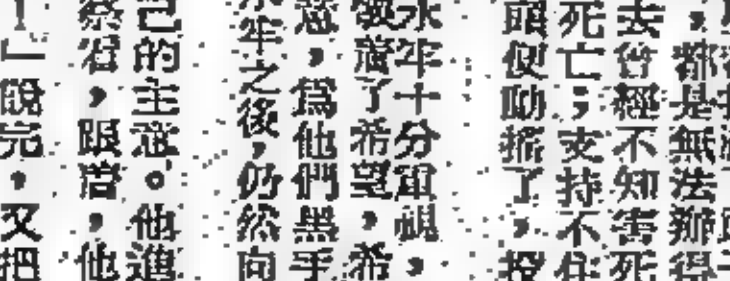 ，都是無法辦得
去曾經不知害死
死亡；支持不住
頭便動搖了，投
水牢十分重視，
了希望，希
意，為他們黑手
水牢之後，仍然向
己的主意。他進
察看，跟着，他
！」說完，又把